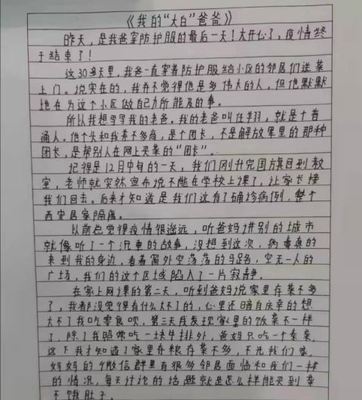 《我的“大白”爸爸》
昨天，是我爸穿防护服的最后一天！太开心了，疫情终
于结束了！
这30多天里，我爸一直穿着防护服给小区的邻居们送菜
上门。说实在的，我并不觉得他是多伟大的人，但他默默
地在为这个小区做自己力所能及的事。
所以我想写写我的老爸，我的老爸叫，就是个普
通人，他个头和我差不多高，是个团长，不是解放军里的那种
团长，是帮别人在网上买菜的“团长”。
记得是12月中旬的一天，我们刚升完国旗回到教
室，老师就突然宣布说不能在学校上课了，让家长接
我们回去。后来才知道是我们这有了确诊病例，整个
西安居家隔离。
从前总觉得疫情很遥远，听爸妈讲别的城市
就像听了一个沉重的故事，没想到这次，病毒真的
来到我的身边，看着窗外空荡荡的马路，空无一人的
广场，我们的这个区域陷入了一片寂静。
在家上网课的第二天，听到爸妈说家里存菜不多
了，我都没觉得有什么大不了的，心里还暗自庆幸的想
大不了我吃零食呗，第三天我发现家里的饭菜不一样
了，除了我照常吃一块牛排外，爸妈只吃一个素菜，
这下我才知道了家里存粮存菜不多，不光我们家，
妈妈的个微信群里有很多邻居面临和我们一样
的情况，每天讨论的话题就是怎么样能买到菜
不饿肚子。